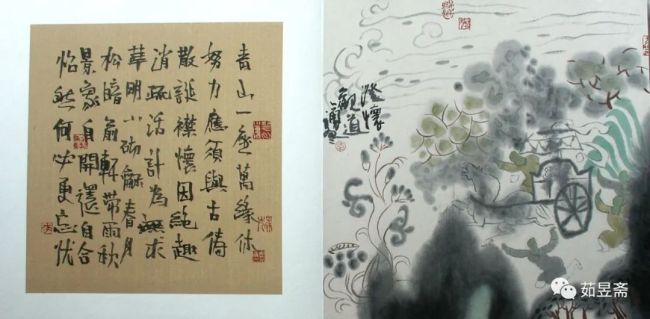 青山一座萬緣休
努力應須與古儔
散誕襟懷因絕趣
消疏活計為無求
華明小砌龢春月
松暗前軒帶雨秋
景象自開還自合
怡然何必更忘忧
澄懷
觀道
茹昱斋